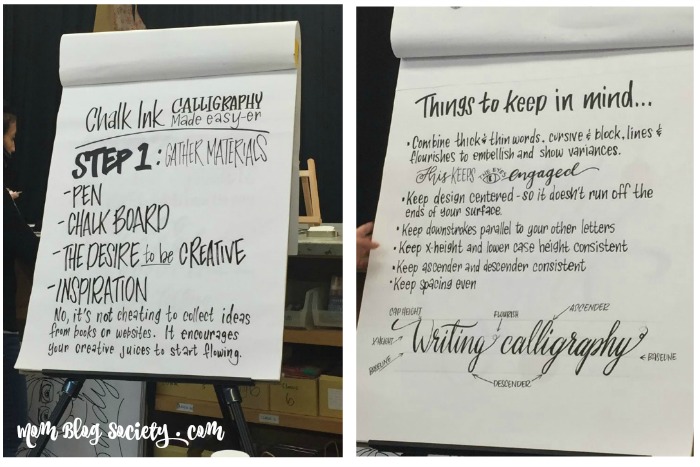 Chalk Ink CALLIGRAPHY
Made easy-er
STEP 1: GATHER MATERIALS
-PEN
-CHALK BOARD
-THE DESIRE to be CREATIVE
-INSPIRATION
No, it's not cheating to collect ideas
from books or websites. It encourages
your creative juices to start flowing.
mom Blog Society.com
Things to keep in mind...
•Combine thick & thin words, cursive & block, lines &
flourishes to embellish and show variances.
This KEEPS engaged
•Keep design centered - so it doesn't run off the
ends of your surface.
•Keep downstrokes parallel to your other letters
•Keep x-height and lower case height consistent
•Keep ascender and descender consistent
•Keep spacing even
CAP HEIGHT
FLOURISH
ASCENDER
X-HEIGHT
Writing calligraphy
BASELINE
BASELINE
DESCENDER